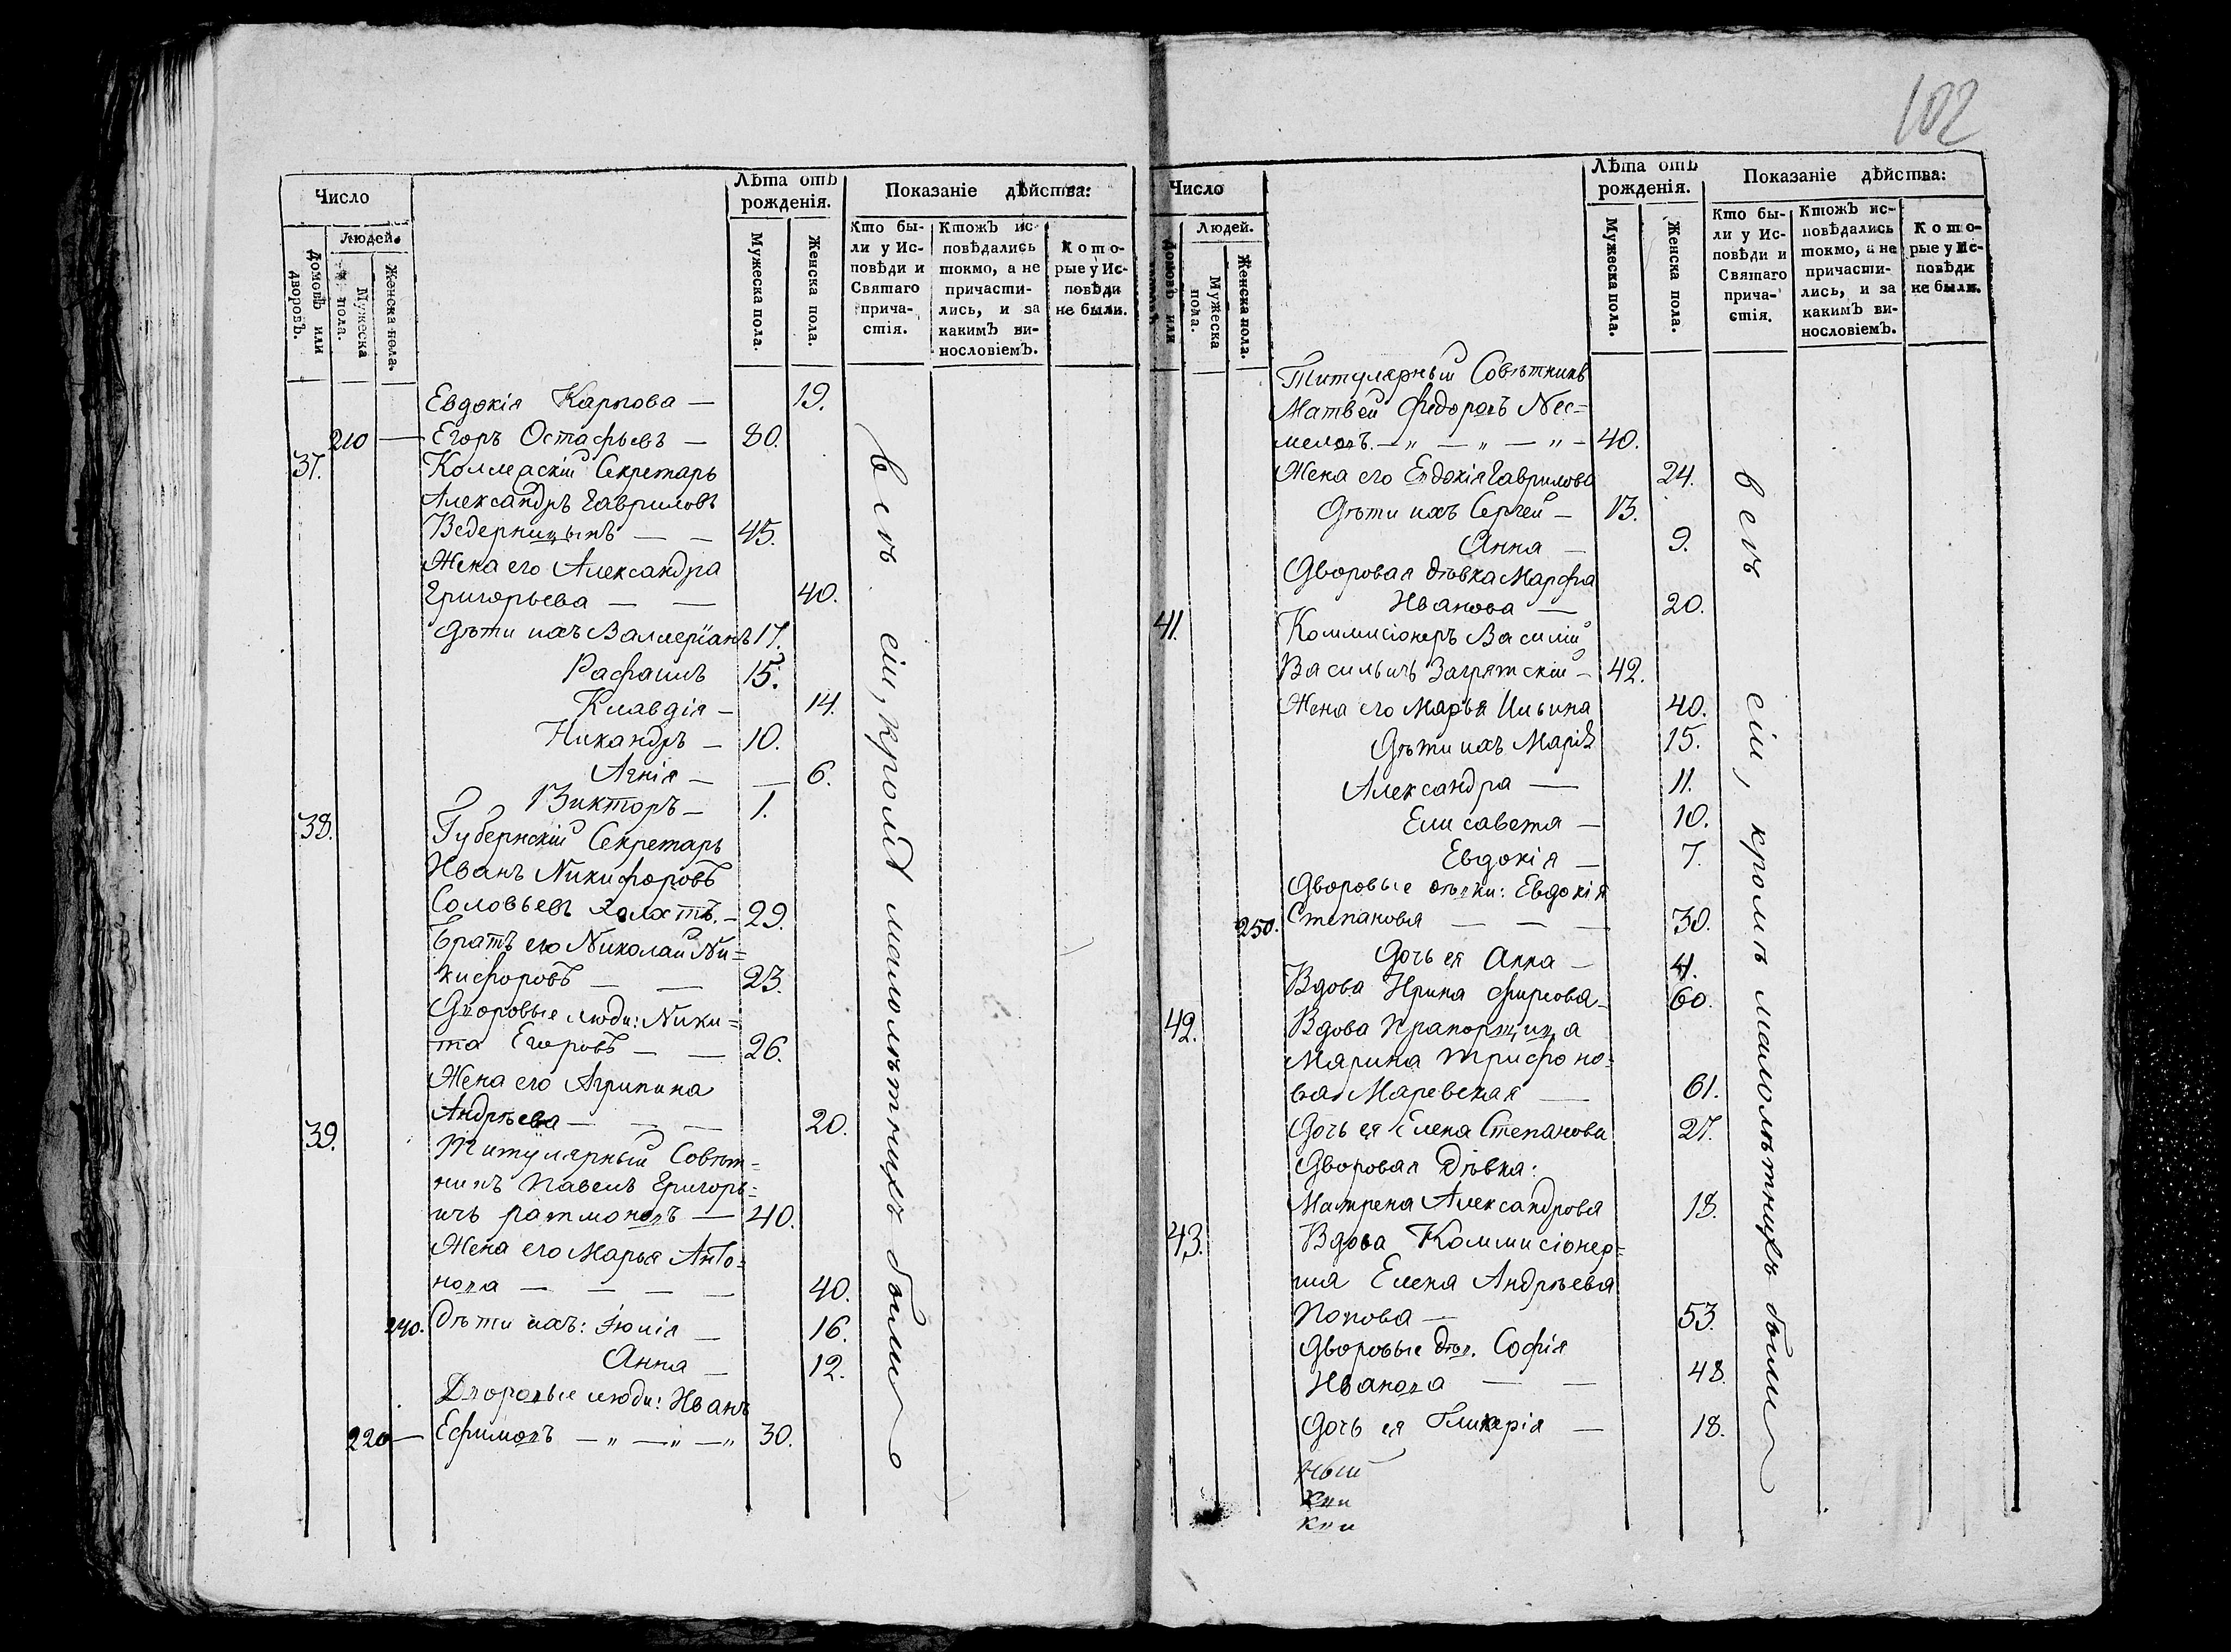 102
Число
Людей.
Домовъ или дворовъ.
Мужеска пола.
Женска пола.
Лѣта отъ рожденія.
Мужеска пола.
Женска пола.
Показаніе дѣйства:
Кто бы-
ли у Ис-
повѣди и
Святаго
прича-
стія.
Ктожъ ис-
повѣдались
токмо, а не
причасти-
лись, и за
какимъ ви-
нословіемъ.
Кото-
рые у Ис-
повѣди
не были.
Евдокія Карпова — 19.
210 — Егоръ Остафьевъ — 80.
37. Коллеаскій Секретарь
Александръ Гавриловъ
Ведерницынъ — — 45.
Жена его Александра
Григорьева — — 40.
Дѣти ихъ Валлеріанъ 17.
Рафаилъ 15.
Клавдія — 14.
Никандръ — 10.
Агнія — — 6.
Викторъ — 1.
38. Губернскій Секретарь
Иванъ Никифоровъ
Соловьевъ холостъ. — 29.
Братъ его Николай Ни=
кифоровъ — — 23.
Дворовые люди: Ники=
та Егоровъ — — 26.
Жена его Агрипина
Андрѣева — — — 20.
39. Титулярный Совѣт=
никъ Павелъ Григорь=
ичъ Ратмоновъ — 40.
Жена его Марья Анто=
нова — — — — 40.
240. Дѣти ихъ: Іюлія — 16.
Анна — 12.
Дворовые люди: Иванъ
220 — Ефимовъ — „ — „ — „ 30.
всѣ сіи, кромѣ малолѣтнихъ были
Число
Людей.
Домовъ или
Мужеска пола.
Женска пола.
Лѣта отъ рожденія.
Мужеска пола.
Женска пола.
Показаніе дѣйства:
Кто бы-
ли у Ис-
повѣди и
Святаго
прича-
стія.
Ктожъ ис-
повѣдались
токмо, а не
причасти-
лись, и за
какимъ ви-
нословіемъ.
Кото-
рые у Ис-
повѣди
не были.
Титулярный Совѣтникъ
Матвей Федоровъ Нес=
меловъ. — „ — „ — „ — 40.
Жена его Евдокія Гаврилова 24.
Дѣти ихъ Сергей — 13.
Анна — 9.
Дворовая дѣвка Марфа
Иванова — 20.
41. Коммисіонеръ Василій
Васильичъ Загрятскій — 42.
Жена его Марья Ильина 40.
Дѣти ихъ Марія 15.
Александра — 11.
Елисавета — 10.
Евдокія — 7.
Дворовые дѣвки: Евдокія
250. Степанова — — — 30.
Дочь ея Анна — 4.
Вдова Ирина Фирсова — 60.
42. Вдова Прапорщица
Марина Трифоно=
ва Маревская — 61.
Дочь ея Елена Степанова 27.
Дворовая дѣвка:
Матрена Александрова 18.
43. Вдова Коммисіонер=
ша Елена Андрѣева
Попова — 53.
Дворовые дѣв. Софія
Иванова — — 48.
Дочь ея Гликерія — 18.
ный
кни
кни
всѣ сіи, кромѣ малолѣтнихъ были